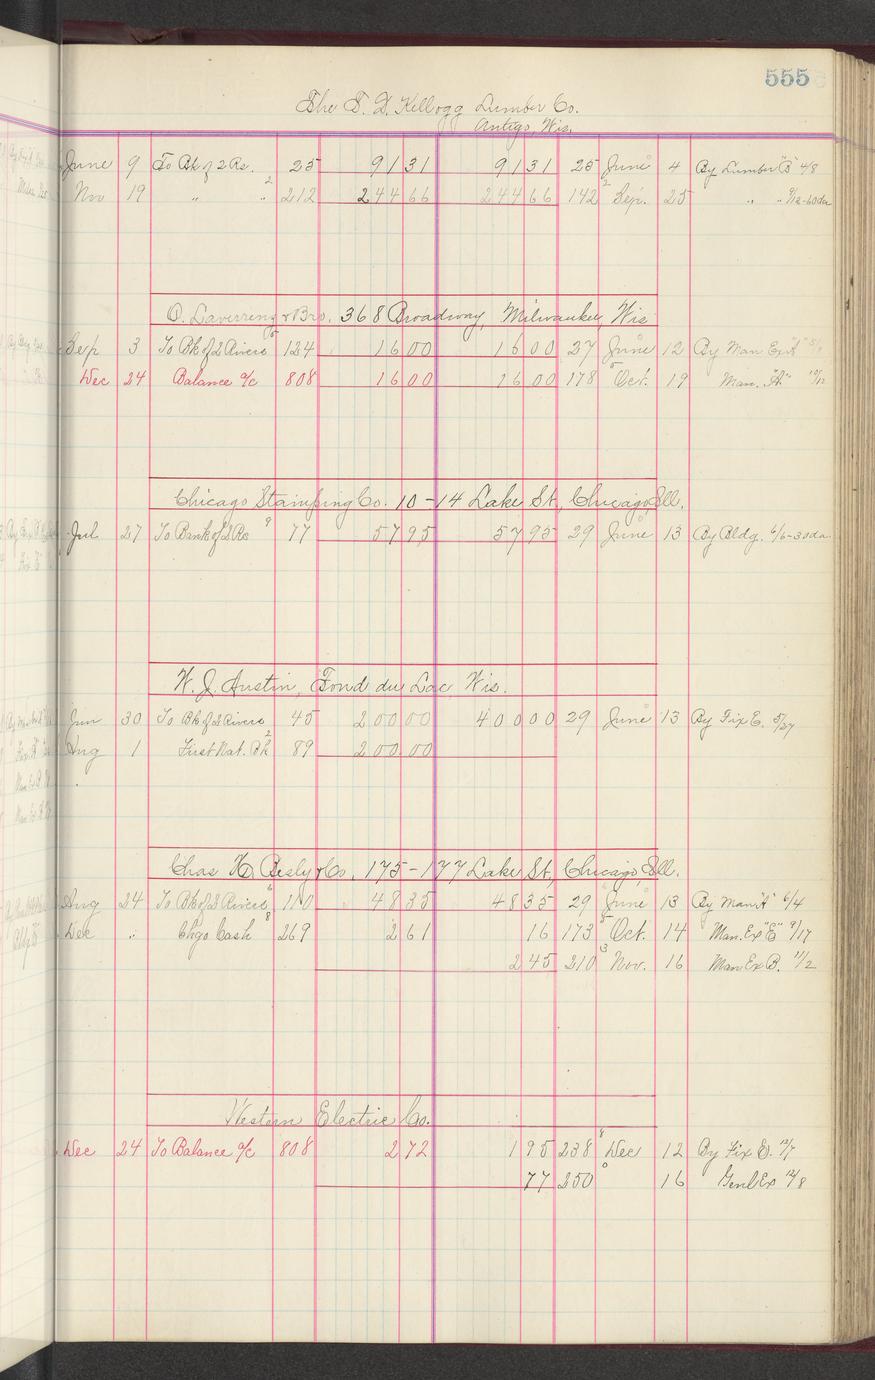 555
The T. D. Kellogg Lumber Co.
Antigo, Wis.
June 9 To Bk of 2 Rs. 25 91 31 91 31 25 June 4 By Lumber "B" 4/8
Nov 19 " " 2 212 244 66 244 66 142 2 Sep. 25 " " 9/12-60da
O. Laverrenz & Bro. 368 Broadway, Milwaukee, Wis
Sep 3 To Bk of 2 Rivers 124 16 00 16 00 27 June 12 By Man Ex
Dec 24 Balance a/c 808 16 00 16 00 178 5 Oct. 19 Man. "A" 10/12
Chicago Stamping Co. 10-14 Lake St., Chicago, Ill.
Jul 27 To Bank of 2 Rs 9 77 57 95 57 95 29 June 13 By Bldg. 6/6-30da
W. J. Austin, Fond du Lac Wis.
Jun 30 To Bk of 2 Rivers 45 200 00 400 00 29 June 13 By Fix E. 5/27
Aug 1 First Nat. Bk 2 89 200 00
Chas H. Besly & Co. 175-177 Lake St., Chicago, Ill.
Aug 24 To Bk of 2 Rivers 6 110 48 35 48 35 29 June 13 By Man "A" 6/4
Dec " Chgo Cash 8 269 2 61 16 173 5 Oct. 14 Man. Ex "E" 9/17
2 45 210 3 Nov. 16 Man Ex B. 11/2
Western Electric Co.
Dec 24 To Balance a/c 808 2 72 1 95 238 8 Dec 12 By Fix E. 12/7
77 250 0 16 Genl Ex 12/8